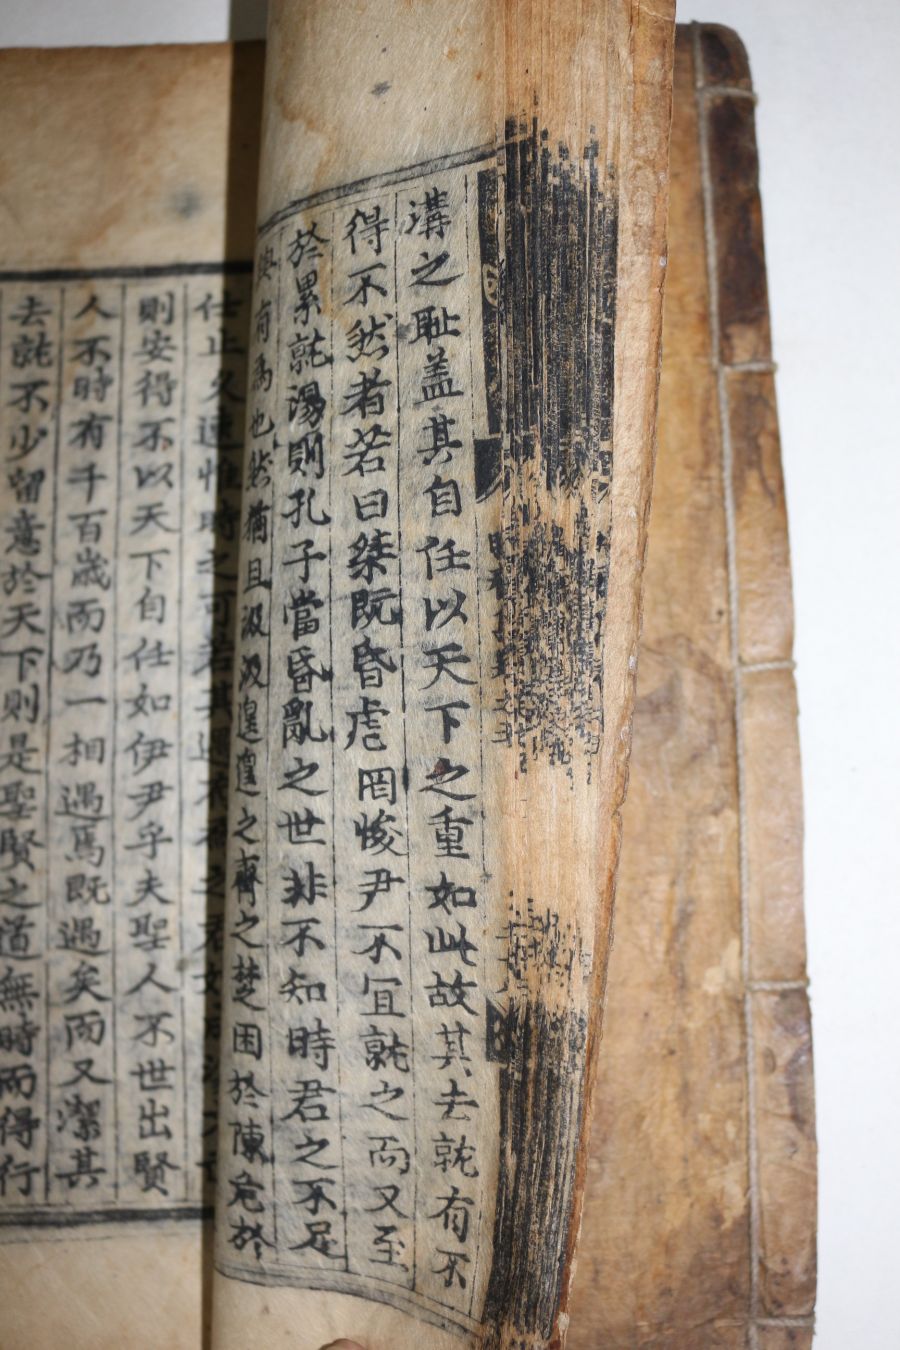 溝之耻盖其自任以天下之重如此故其去就有不
得不然者若曰桀旣昏虐罔悛尹不宜就之而又至
於累就湯則孔子當昏亂之世非不知時君之不足
與有爲也然猶且汲汲遑遑之齊之楚困於陳危於
仕止久速惟時之可若其
則安得不以天下自任如伊尹乎夫聖人不世出賢
人不時有千百歲而乃一相遇焉旣遇矣而又潔其
去就不少留意於天下則是聖賢之道無時而得行